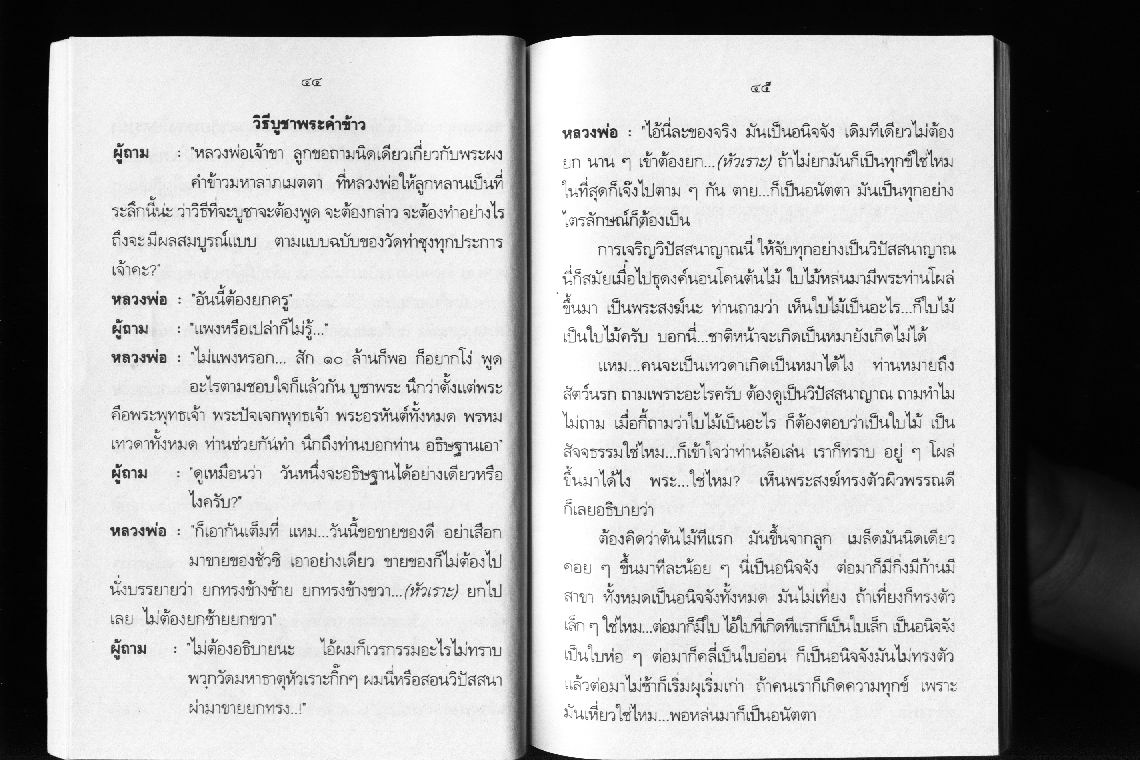 ๔๔
วิธีบูชาพระคำข้าว
ผู้ถาม : "หลวงพ่อเจ้าขา ลูกขอถามนิดเดียวเกี่ยวกับพระผง
คำข้าวมหาลาภเมตตา ที่หลวงพ่อให้ลูกหลานเป็นที่
ระลึกนี้น่ะ ว่าวิธีที่จะบูชาจะต้องพูด จะต้องกล่าว จะต้องทำอย่างไร
ถึงจะมีผลสมบูรณ์แบบ ตามแบบฉบับของวัดท่าซุงทุกประการ
เจ้าคะ?"
หลวงพ่อ : "อันนี้ต้องยกครู"
ผู้ถาม : "แพงหรือเปล่าก็ไม่รู้..."
หลวงพ่อ : "ไม่แพงหรอก... สัก ๑๐ ล้านก็พอ ก็อยากโง่ พูด
อะไรตามชอบใจก็แล้วกัน บูชาพระ นึกว่าตั้งแต่พระ
คือพระพุทธเจ้า พระปัจเจกพุทธเจ้า พระอรหันต์ทั้งหมด พรหม
เทวดาทั้งหมด ท่านช่วยกันทำ นึกถึงท่านบอกท่าน อธิษฐานเอา"
ผู้ถาม : "ดูเหมือนว่า วันหนึ่งจะอธิษฐานได้อย่างเดียวหรือ
ไงครับ?"
หลวงพ่อ : "ก็เอากันเต็มที่ แหม...วันนี้ขอขายของดี อย่าเสือก
มาขายของชั่วซิ เอาอย่างเดียว ขายของก็ไม่ต้องไป
นั่งบรรยายว่า ยกทรงข้างซ้าย ยกทรงข้างขวา...(หัวเราะ) ยกไป
เลย ไม่ต้องยกซ้ายยกขวา"
ผู้ถาม : "ไม่ต้องอธิบายนะ ไอ้ผมก็เวรกรรมอะไรไม่ทราบ
พวกวัดมหาธาตุหัวเราะกิ๊กๆ ผมนี่หรือสอนวิปัสสนา
ผ่ามาขายยกทรง..!"
๔๕
หลวงพ่อ : "ไอ้นี่ละของจริง มันเป็นอนิจจัง เดิมทีเดียวไม่ต้อง
ยก นาน ๆ เข้าต้องยก...(หัวเราะ) ถ้าไม่ยกมันก็เป็นทุกข์ใช่ไหม
ในที่สุดก็เจ๊งไปตาม ๆ กัน ตาย...ก็เป็นอนัตตา มันเป็นทุกอย่าง
ไตรลักษณ์ก็ต้องเป็น
การเจริญวิปัสสนาญาณนี่ ให้จับทุกอย่างเป็นวิปัสสนาญาณ
นี่ก็สมัยเมื่อไปธุดงค์นอนโคนต้นไม้ ใบไม้หล่นมามีพระท่านโผล่
ขึ้นมา เป็นพระสงฆ์นะ ท่านถามว่า เห็นใบไม้เป็นอะไร...ก็ใบไม้
เป็นใบไม้ครับ บอกนี่...ชาติหน้าจะเกิดเป็นหมายังเกิดไม่ได้
แหม...คนจะเป็นเทวดาเกิดเป็นหมาได้ไง ท่านหมายถึง
สัตว์นรก ถามเพราะอะไรครับ ต้องดูเป็นวิปัสสนาญาณ ถามทำไม
ไม่ถาม เมื่อกี้ถามว่าใบไม้เป็นอะไร ก็ต้องตอบว่าเป็นใบไม้ เป็น
สัจจธรรมใช่ไหม...ก็เข้าใจว่าท่านล้อเล่น เราก็ทราบ อยู่ ๆ โผล่
ขึ้นมาได้ไง พระ...ใช่ไหม? เห็นพระสงฆ์ทรงตัวผิวพรรณดี
ก็เลยอธิบายว่า
ต้องคิดว่าต้นไม้ทีแรก มันขึ้นจากลูก เมล็ดมันนิดเดียว
ค่อย ๆ ขึ้นมาทีละน้อย ๆ นี่เป็นอนิจจัง ต่อมาก็มีกิ่งมีก้านมี
สาขา ทั้งหมดเป็นอนิจจังทั้งหมด มันไม่เที่ยง ถ้าเที่ยงก็ทรงตัว
เล็ก ๆ ใช่ไหม...ต่อมาก็มีใบ ไอ้ใบที่เกิดทีแรกก็เป็นใบเล็ก เป็นอนิจจัง
เป็นใบห่อ ๆ ต่อมาก็คลี่เป็นใบอ่อน ก็เป็นอนิจจังมันไม่ทรงตัว
แล้วต่อมาไม่ช้าก็เริ่มผุเริ่มเก่า ถ้าคนเราก็เกิดความทุกข์ เพราะ
มันเหี่ยวใช่ไหม...พอหล่นมาก็เป็นอนัตตา